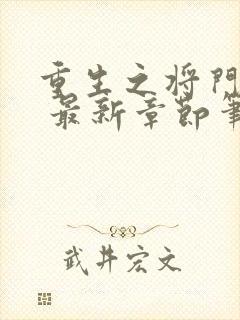 重生之将門
最新章節筆
武井宏文